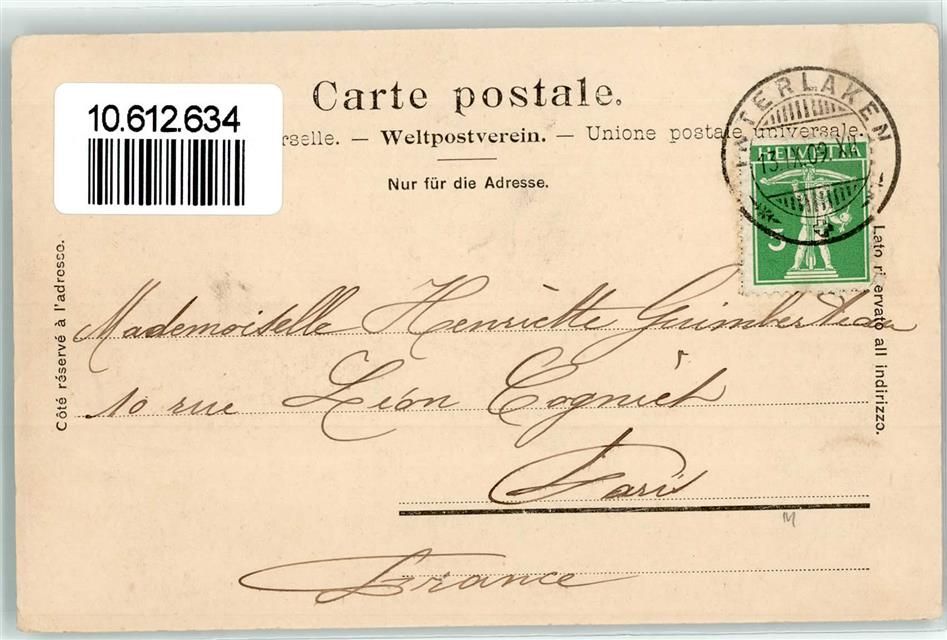 10.612.634
Carte postale.
rselle. — Weltpostverein. — Unione postale universale.
Nur für die Adresse.
INTERLAKEN
13.IX.09.XII
HELVETIA
5
Côté réservé à l'adresse.
Lato riservato all indirizzo.
Mademoiselle Henriette
10 rue Léon Cogniet
Paris
M
France